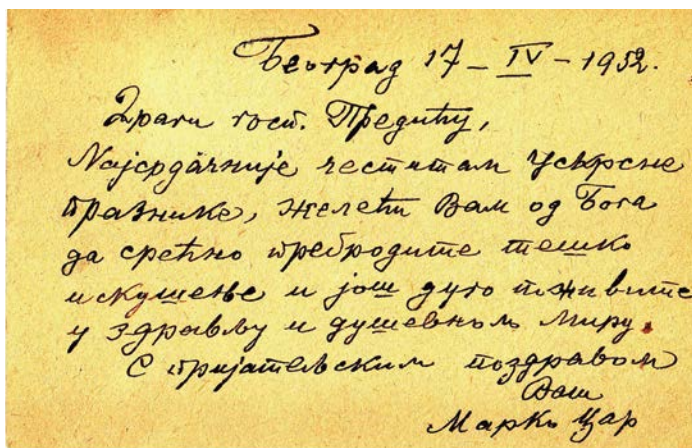 Београд 17 – IV – 1952.
Драги госп. Предићу,
Најсрдачније честитам Ускрсне
празнике, желећи Вам од Бога
да срећно пребродите тешко
искушење и још дуго поживите
у здрављу и душевном миру.
С пријатељским поздравом
Ваш
Марко Цар